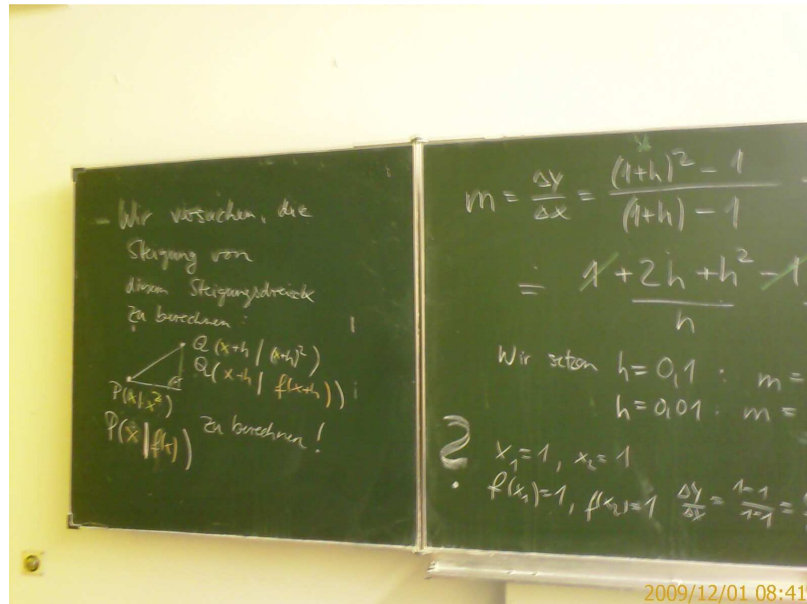 - Wir versuchen, die
Steigung von
diesem Steigungsdreieck
zu berechnen:
Q(x+h | (x+h)²)
Q(x+h | f(x+h))
P(x | x²)
P(x | f(x)) zu berechnen!
m = Δy/Δx = ((1+h)² - 1)/((1+h) - 1)
= (1 + 2h + h² - 1)/h
Wir setzen h = 0,1 : m =
h = 0,01 : m =
?
x₁ = 1, x₂ = 1
f(x₁) = 1, f(x₂) = 1 Δy/Δx = (1-1)/(1-1) =
2009/12/01 08:41